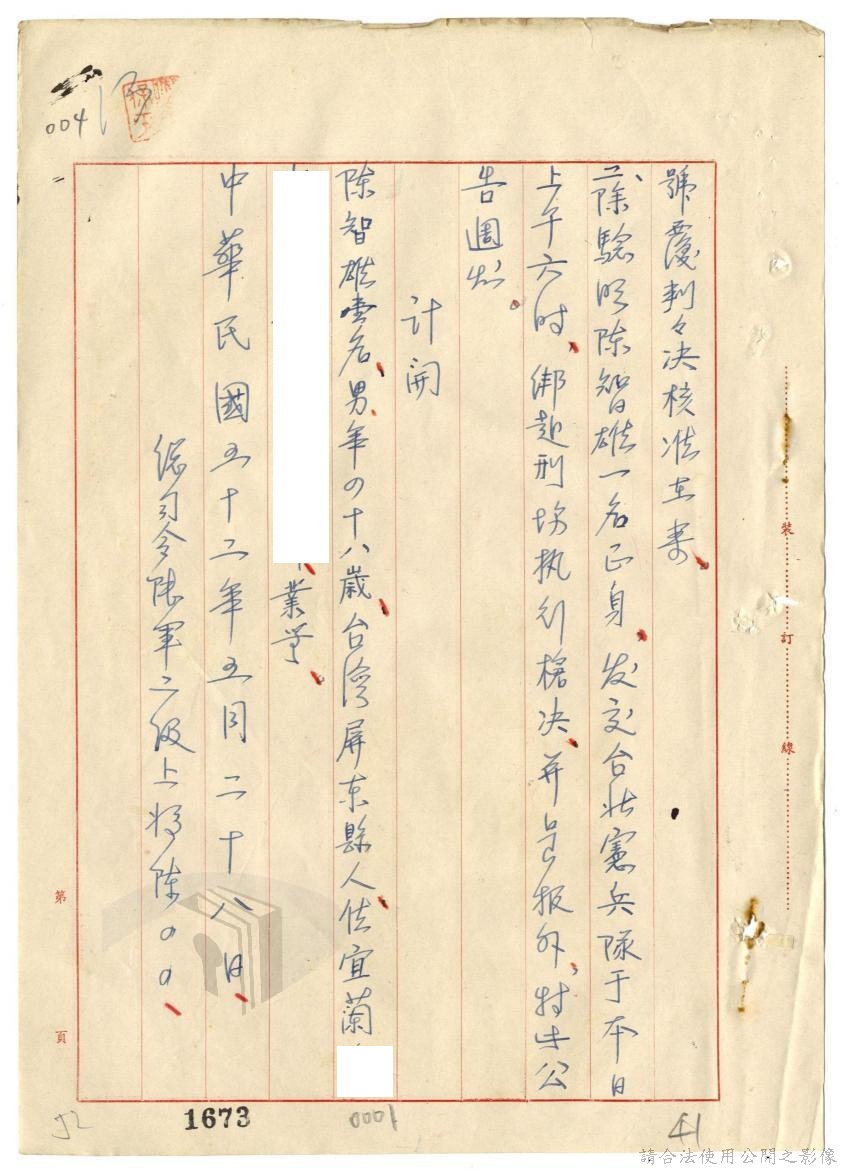 號覆判々決核准在案、
二、除驗明陳智雄一名正身、发交台北憲兵隊于本日
上午六时、绑赴刑場执行槍决、并呈报外、特此公
告週知。
計開
陳智雄壹名、男、年四十八歲、台湾屏東縣人、住宜蘭
業學、
中華民國五十二年五月二十八日、
總司令陸軍二級上将陳○○、
裝
訂
線
第
頁
004
52
1673
0001
41
請合法使用公開之影像